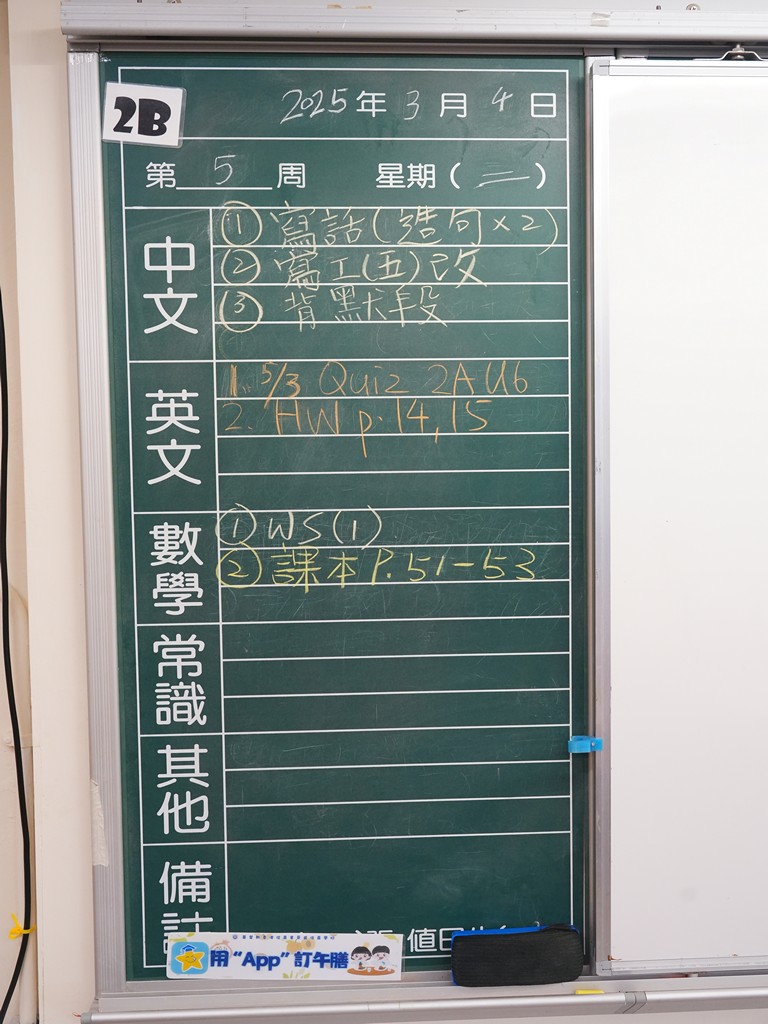 2B
2025年3月4日
第5周 星期(二)
中文
① 寫話(造句×2)
② 寫工(五)改
③ 背默段
英文
1. 5/3 Quiz 2A U6
2. HW p.14,15
數學
① WS(1)
② 課本P.51-53
常識
其他
備註
值日生(
用“App”訂午膳